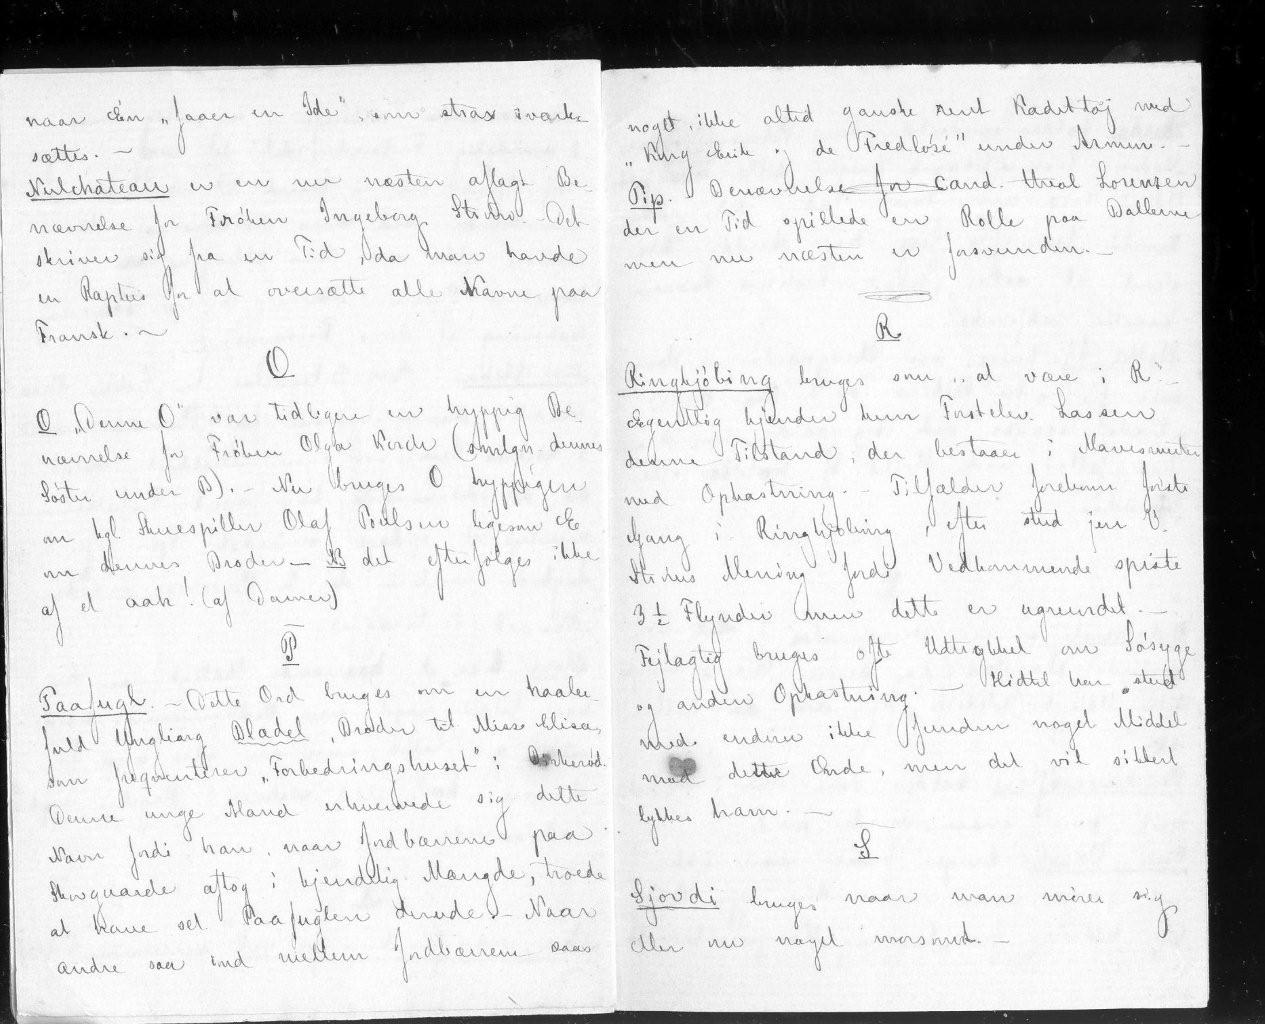 naar Én „faaer en Ide", som strax iværk-
sættes. —
Neilchateau er en nu næsten aflagt Be-
nævnelse for Frøken Ingeborg Det
skriver sig fra en Tid, da man havde
en Raptus for at oversætte alle Navne paa
Fransk. —
O
O „Denne O" var tidligere en hyppig Be-
nævnelse for Frøken Olga Koch (smlgn. dennes
Søster under B). — Nu bruges O hyppigen
om kgl. Skuespiller Olaf Poulsen ligesom E
om dennes Broder — NB det efterfølges ikke
af et aah! (af Damer)
P
Paafugl. — Dette Ord bruges om en haabe
fuld Yngling Bladel, Broder til Miss Elisa,
som frequenterer „Forbedringshuset" i Birkerød.
Denne unge Mand erhvervede sig dette
Navn fordi han, naar Jordbærrene paa
Skovgaarde aftog i kjendelig Mængde, troede
at have set Paafuglen derude. — Naar
andre saa ind mellem Jordbærrene saas
noget, ikke altid ganske rent Kadettøj med
„Kong Erik og de Fredløse" under Armen. —
Pip. Benævnelse for Cand. theol Lorensen
der en Tid spillede en Rolle paa Ballerne
men nu næsten er forsvunden. —
R
Ringkjøbing bruges som „at være i R" —
Egentlig kjender kun Forstelev Lassen
denne Tilstand, der bestaaer i Mavesmerter
med Ophastning. — Tilfældet forekom første
Gang i Ringkjøbing, efter stud jur V.
Mening fordi Vedkommende spiste
3 ½ Flynder men dette er ugrundet. —
Fejlagtig bruges ofte Udtrykket om Søsyge
og anden Ophastning. — Hidtil har stud
med. endnu ikke funden noget Middel
mod dette Onde, men det vil sikkert
lykkes ham. —
S
Sjovdi bruges naar man morer sig
eller om noget morsomt. —